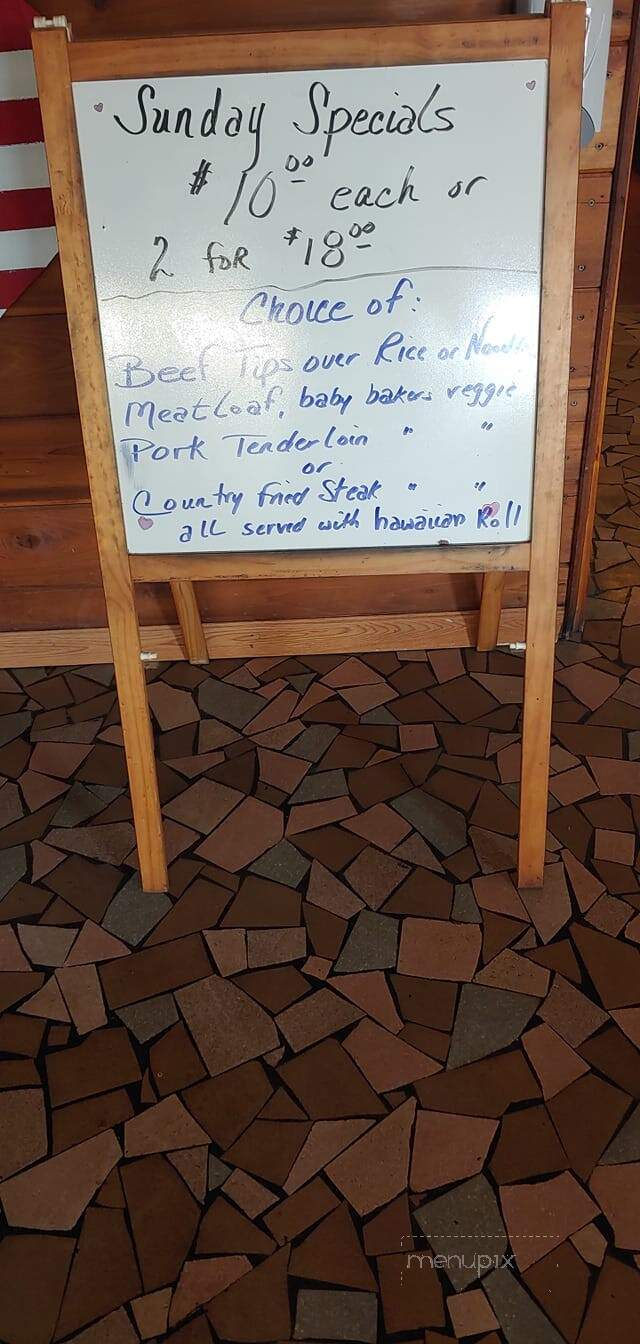 Sunday Specials
$10.00 each or
2 for $18.00
Choice of:
Beef Tips over Rice or
Meatloaf, baby bakers veggie
Pork Tenderloin " "
or
Country fried Steak " "
all served with hawaiian Roll
menupix